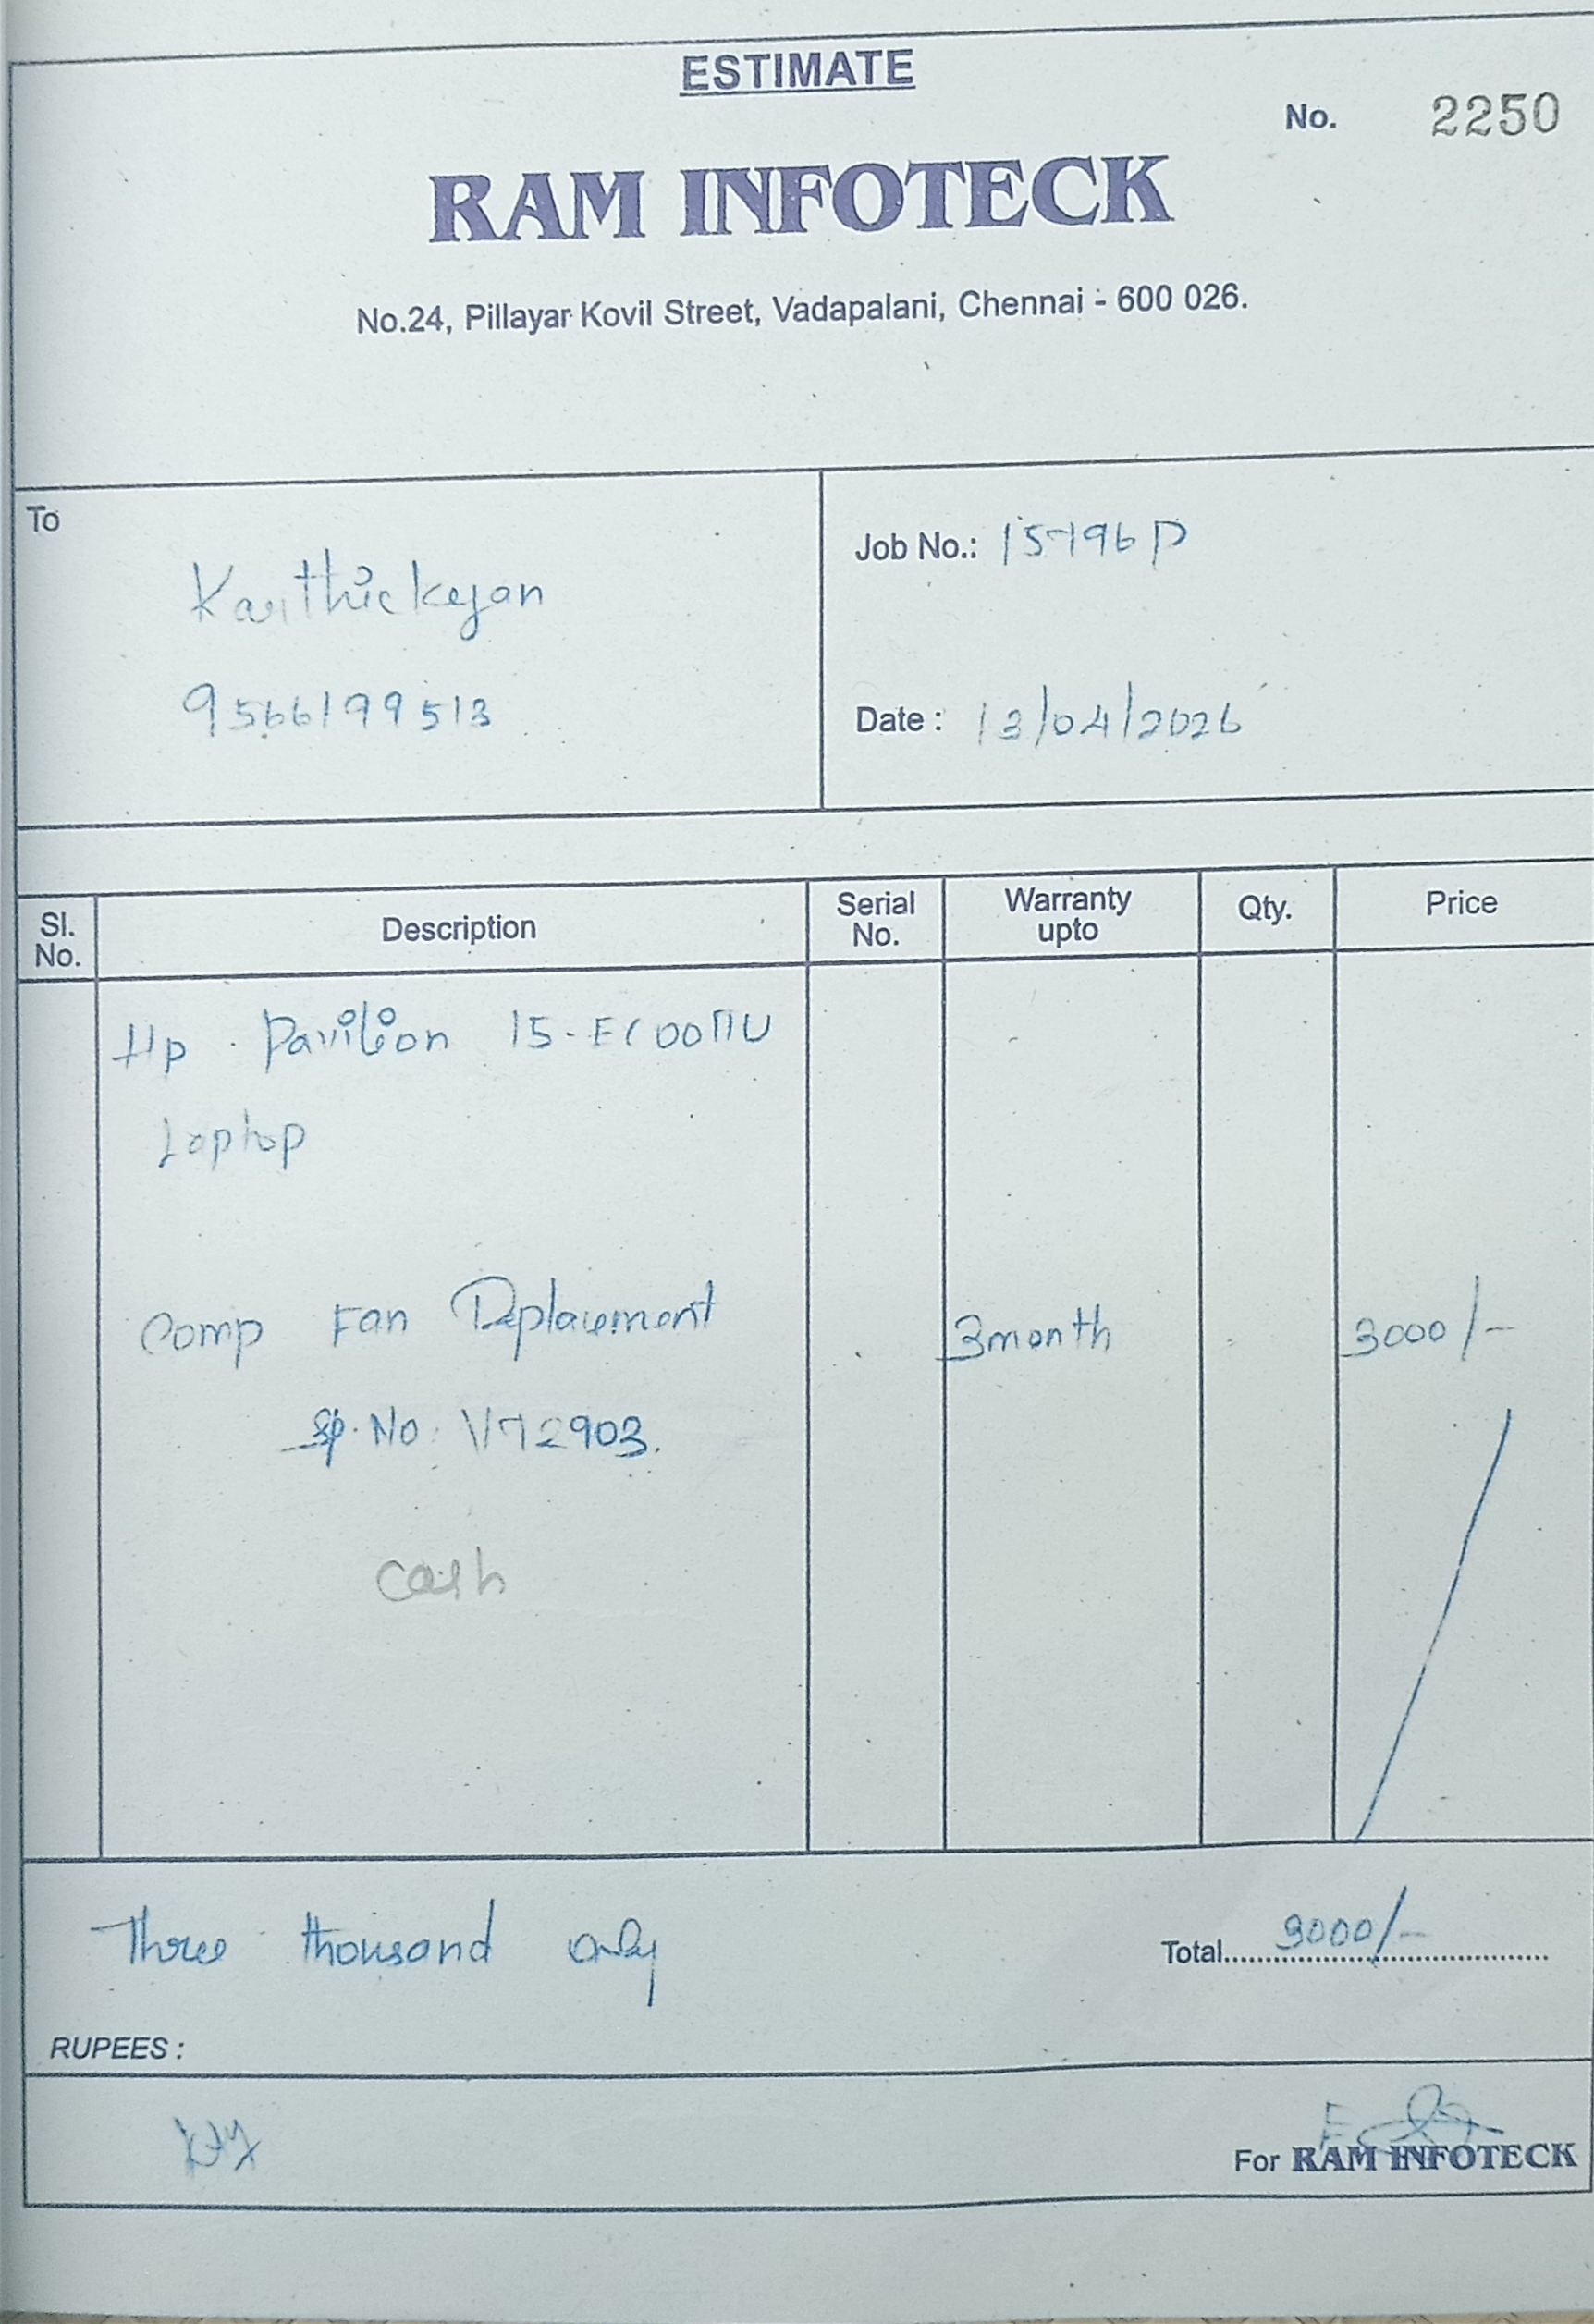 ESTIMATE
No. 2250
RAM INFOTECK
No.24, Pillayar Kovil Street, Vadapalani, Chennai - 600 026.
To
Karthickeyan
9566199513
Job No.: 15796 D
Date : 13/04/2026
Sl. No. Description Serial No. Warranty upto Qty. Price
Hp Pavilion 15-
Laptop
Comp Fan Replacement 3month 3000/-
No: V72903.
Cash
Three thousand only
Total 3000/-
RUPEES :
For RAM INFOTECK